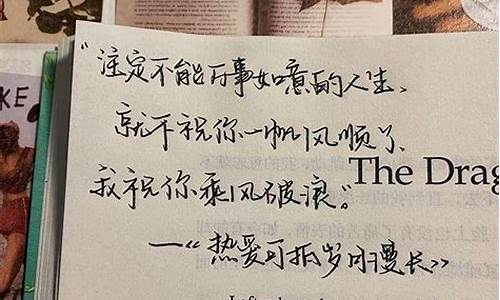 “注定不能万事如意的人生、
就不祝你一帆风顺了、
我祝你乘风破浪”。
The Drag
—《热爱可抵岁月漫长》